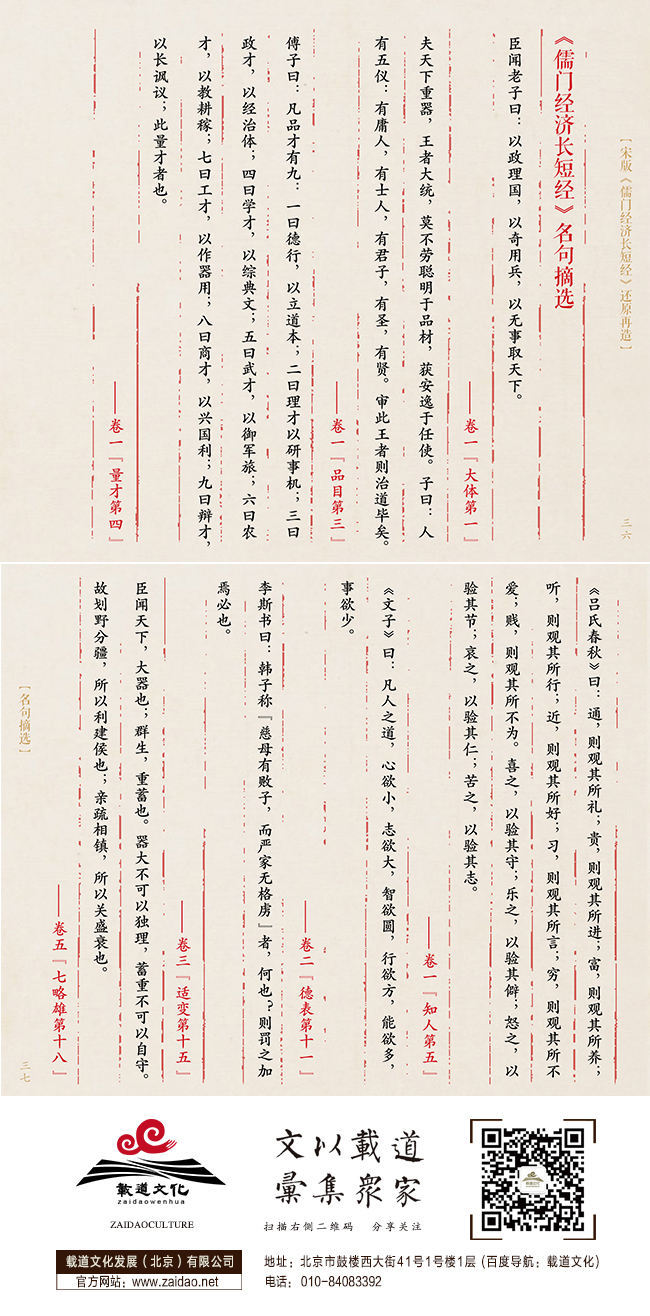 [宋版《儒门经济长短经》还原再造]
三六
《儒门经济长短经》名句摘选
臣闻老子曰：以政理国，以奇用兵，以无事取天下。
——卷一『大体第一』
夫天下重器，王者大统，莫不劳聪明于品材，获安逸于任使。子曰：人
有五仪：有庸人，有士人，有君子，有圣，有贤。审此王者则治道毕矣。
——卷一『品目第三』
傅子曰：凡品才有九：一曰德行，以立道本；二曰理才以研事机；三曰
政才，以经治体；四曰学才，以综典文；五曰武才，以御军旅；六曰农
才，以教耕稼；七曰工才，以作器用；八曰商才，以兴国利；九曰辩才，
以长讽议；此量才者也。
——卷一『量才第四』
《吕氏春秋》曰：通，则观其所礼；贵，则观其所进；富，则观其所养；
听，则观其所行；近，则观其所好；习，则观其所言；穷，则观其所不
爱；贱，则观其所不为。喜之，以验其守；乐之，以验其僻；怒之，以
验其节；哀之，以验其仁；苦之，以验其志。
——卷一『知人第五』
《文子》曰：凡人之道，心欲小，志欲大，智欲圆，行欲方，能欲多，
事欲少。
——卷二『德表第十一』
李斯书曰：韩子称『慈母有败子，而严家无格虏』者，何也？则罚之加
焉必也。
——卷三『适变第十五』
臣闻天下，大器也；群生，重蓄也。器大不可以独理，蓄重不可以自守。
故划野分疆，所以利建侯也；亲疏相镇，所以关盛衰也。
——卷五『七略雄第十八』
[名句摘选]
三七
載道文化
zaidaowenhua
ZAIDAOCULTURE
文以載道
彙集眾家
扫描右侧二维码 分享关注
載道文化
載道文化发展（北京）有限公司
官方网站：www.zaidao.net
地址：北京市鼓楼西大街41号1号楼1层（百度导航：載道文化）
电话：010-84083392